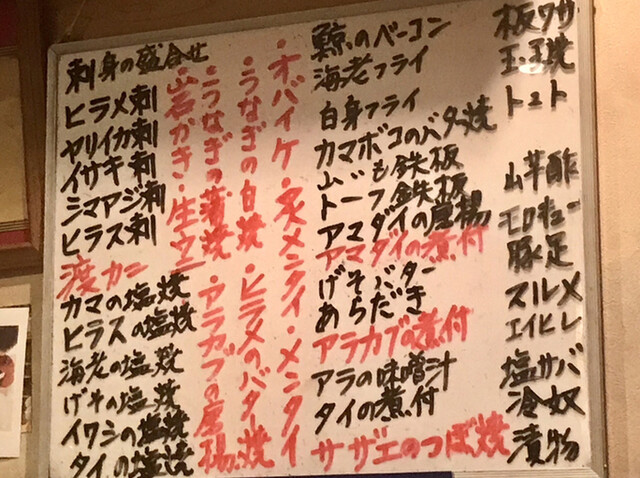 刺身の盛合せ
ヒラメ刺
ヤリイカ刺
イサキ刺
シマアジ刺
ヒラス刺
渡カニ
カマの塩焼
ヒラスの塩焼
海老の塩焼
げその塩焼
イワシの塩焼
タイの塩焼
・オバイケ・炙メンタイ・メンタイ
・うなぎの白焼・ヒラメのバタ焼
・うなぎの蒲焼・アラカブの唐揚
・岩がき・生ウニ
鯨のベーコン
海老フライ
白身フライ
カマボコのバタ焼
山いも鉄板
トーフ鉄板
アマダイの唐揚
アマダイの煮付
げそバター
あらだき
アラカブの煮付
アラの味噌汁
タイの煮付
サザエのつぼ焼
板ワサ
玉々焼
トマト
山芋酢
モロキュー
豚足
スルメ
エイヒレ
塩サバ
冷奴
漬物